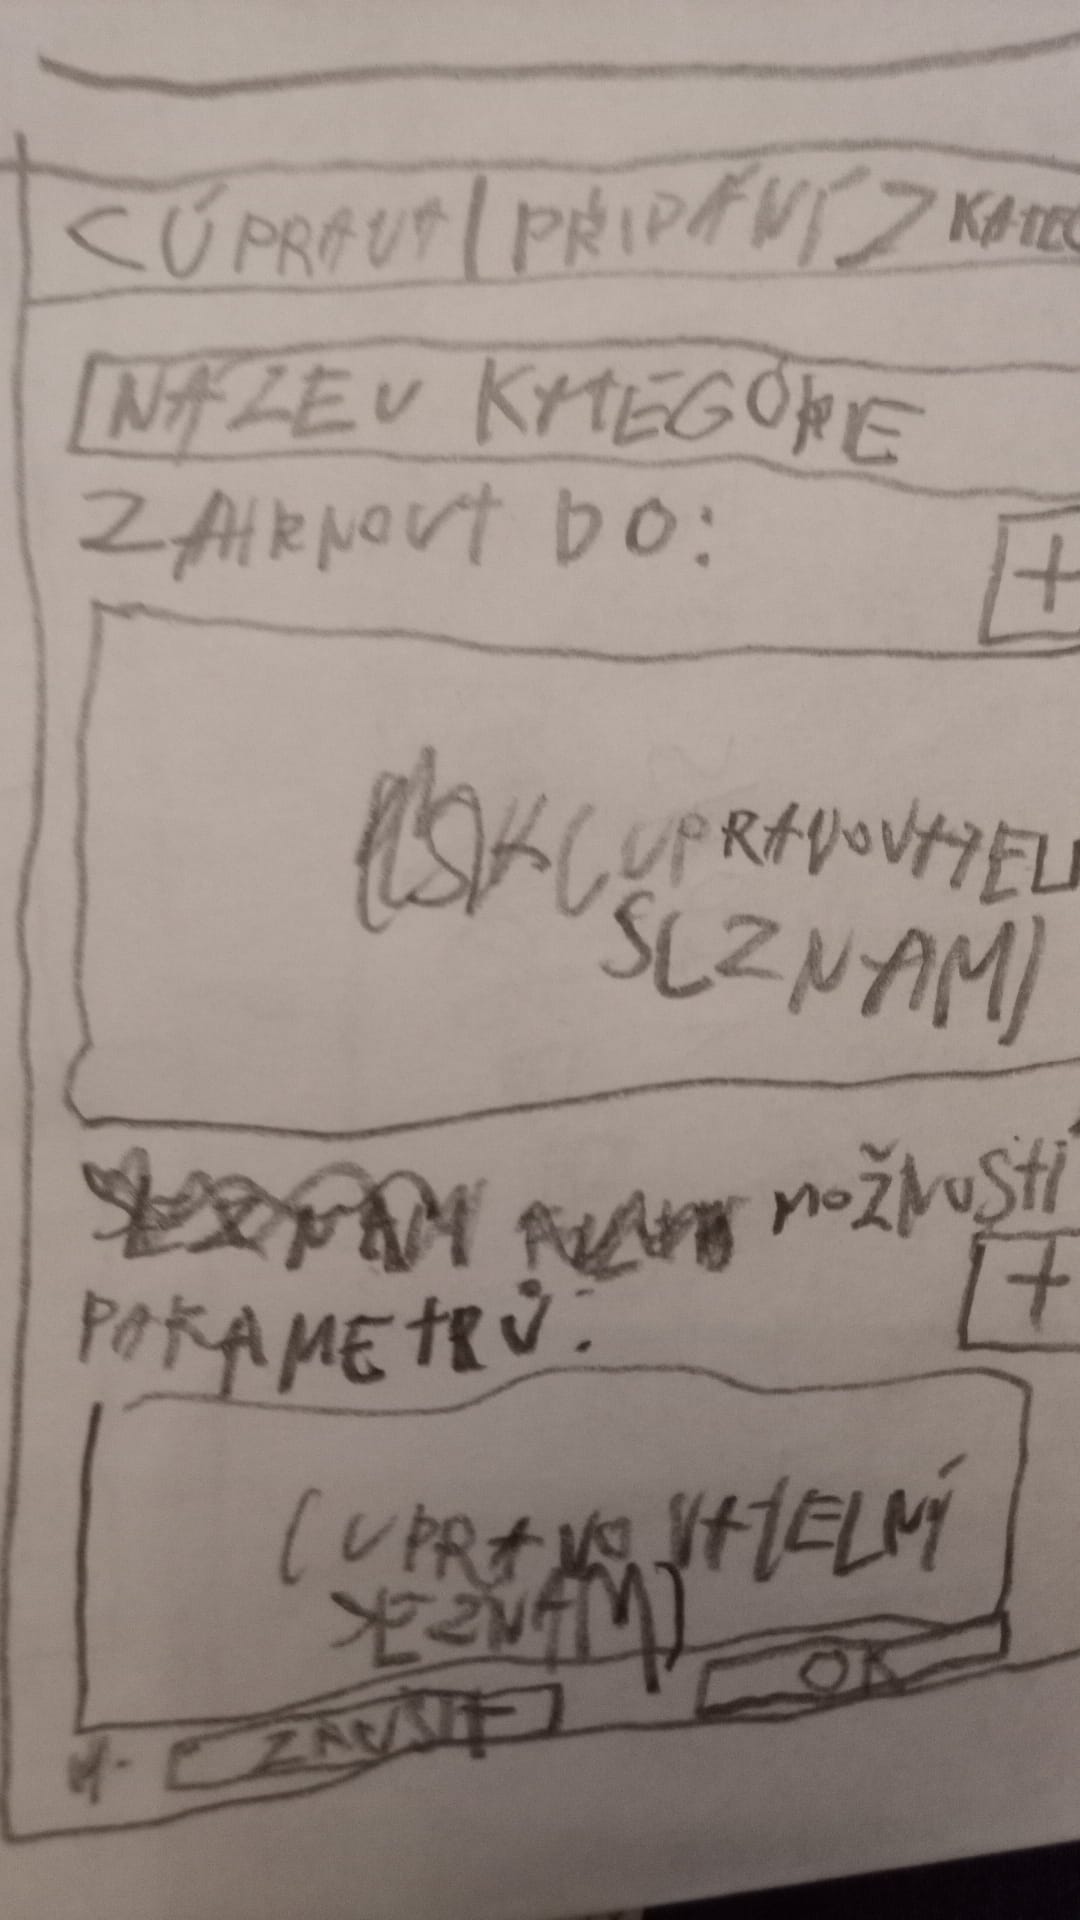 <ÚPRAVA|PŘIDÁNÍ> KATEG
NÁZEV KATEGORIE
ZAHRNOUT DO:
+
(UPRAVOVATELN
SEZNAM)
MOŽNOSTÍ
+
PARAMETRŮ:
(UPRAVOVATELNÝ
SEZNAM)
ZRUŠIT
OK